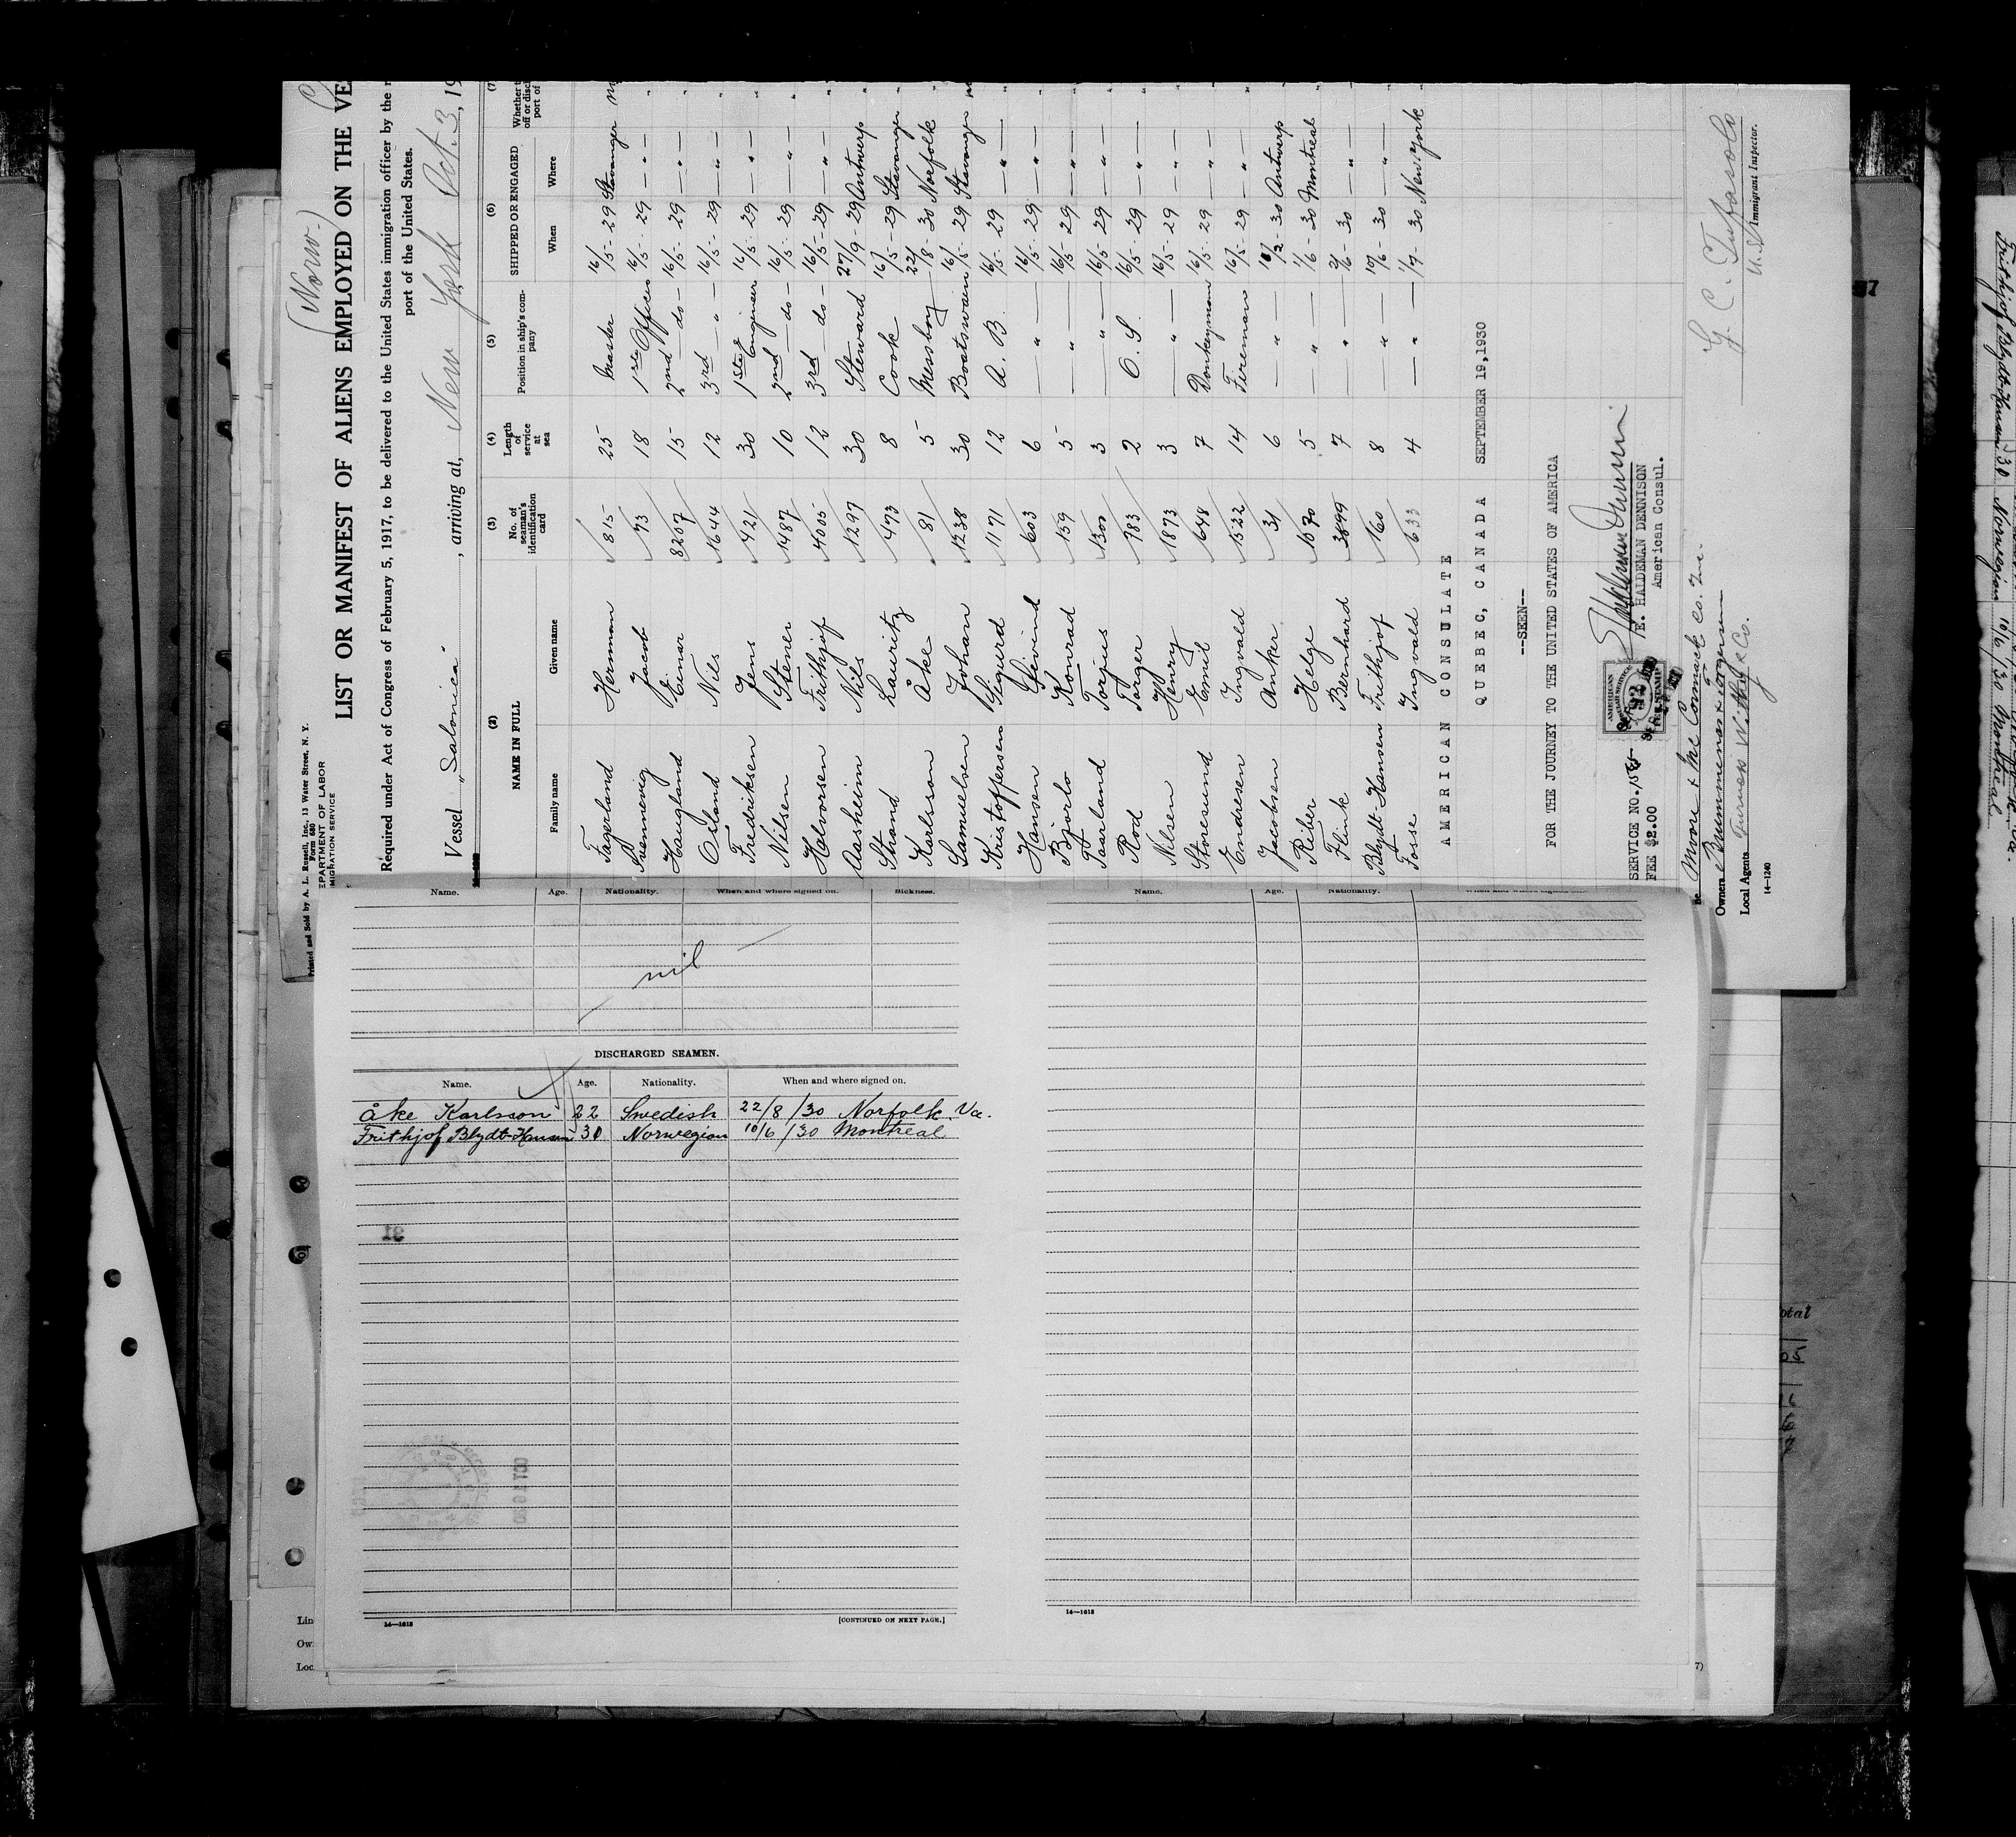 (Norw.)
Printed and Sold by A. L. Russell, Inc., 13 Water Street, N. Y.
Form 680
DEPARTMENT OF LABOR
IMMIGRATION SERVICE
LIST OR MANIFEST OF ALIENS EMPLOYED ON THE VE
Required under Act of Congress of February 5, 1917, to be delivered to the United States immigration officer by the r
port of the United States.
Vessel "Salonica", arriving at, New York Oct. 3, 19
(2) (3) (4) (5) (6) (7
NAME IN FULL No. of seaman's identification card Length of service at sea Position in ship's company SHIPPED OR ENGAGED Whether t
off or discl
port of
Family name Given name When Where
Fagerland Herman 815 25 Master 16/5-29 Stavanger
Svennevig Jacob 73 18 1st Officer 16/5-29 — " —
Haugland Einar 8207 15 2nd — do — 16/5-29 — " —
Osland Nils 1644 12 3rd — " — 16/5-29 — " —
Fredriksen Jens 421 30 1st Engineer 16/5-29 — " —
Nilsen Stener 1487 10 2nd — do — 16/5-29 — " —
Halvorsen Frithjof 4005 12 3rd — do — 16/5-29 — " —
Aasheim Nils 1297 30 Steward 27/9-29 Antwerp
Strand Lauritz 473 8 Cook 16/5-29 Stavanger
Karlsson Åke 81 5 Messboy 22/8-30 Norfolk
Samuelsen Johan 1238 30 Boatswain 16/5-29 Stavanger
Kristoffersen Sigurd 1171 12 A. B. 16/5-29 — " —
Hansen Eivind 603 6 — " — 16/5-29 — " —
Bjorlo Konrad 159 5 — " — 16/5-29 — " —
Taarland Torjus 1300 3 — " — 16/5-29 — " —
Rod Torger 783 2 O. S. 16/5-29 — " —
Nilsen Henry 1873 3 — " — 16/5-29 — " —
Storesund Emil 648 7 Donkeyman 16/5-29 — " —
Endresen Ingvald 1522 14 Fireman 16/5-29 — " —
Jacobsen Anker 31 6 — " — 10/2-30 Antwerp
Riber Helge 1070 5 — " — 1/6-30 Montreal
Flink Bernhard 3899 7 — " — 2/6-30 — " —
Blydt-Hansen Frithjof 160 8 — " — 10/6-30 — " —
Forse Ingvald 633 4 — " — 1/7 30 New York
AMERICAN CONSULATE
QUEBEC, CANADA SEPTEMBER 19,1930
--SEEN--
FOR THE JOURNEY TO THE UNITED STATES OF AMERICA
SERVICE NO.
FEE $2.00
E. HALDEMAN DENNISON
American Consul.
Moore & McCormack Co. Inc.
Owners
Local Agents Furness Withy & Co.
14-1240
U.S. Immigrant Inspector.
Name. Age. Nationality. When and where signed on. Sickness.
nil
DISCHARGED SEAMEN.
Name. Age. Nationality. When and where signed on.
Åke Karlsson 22 Swedish 22/8/30 Norfolk Va.
Frithjof Blydt-Hansen 30 Norwegian 10/6/30 Montreal
14—1613
[CONTINUED ON NEXT PAGE.]
Name. Age. Nationality. When and where signed on.
14—1613